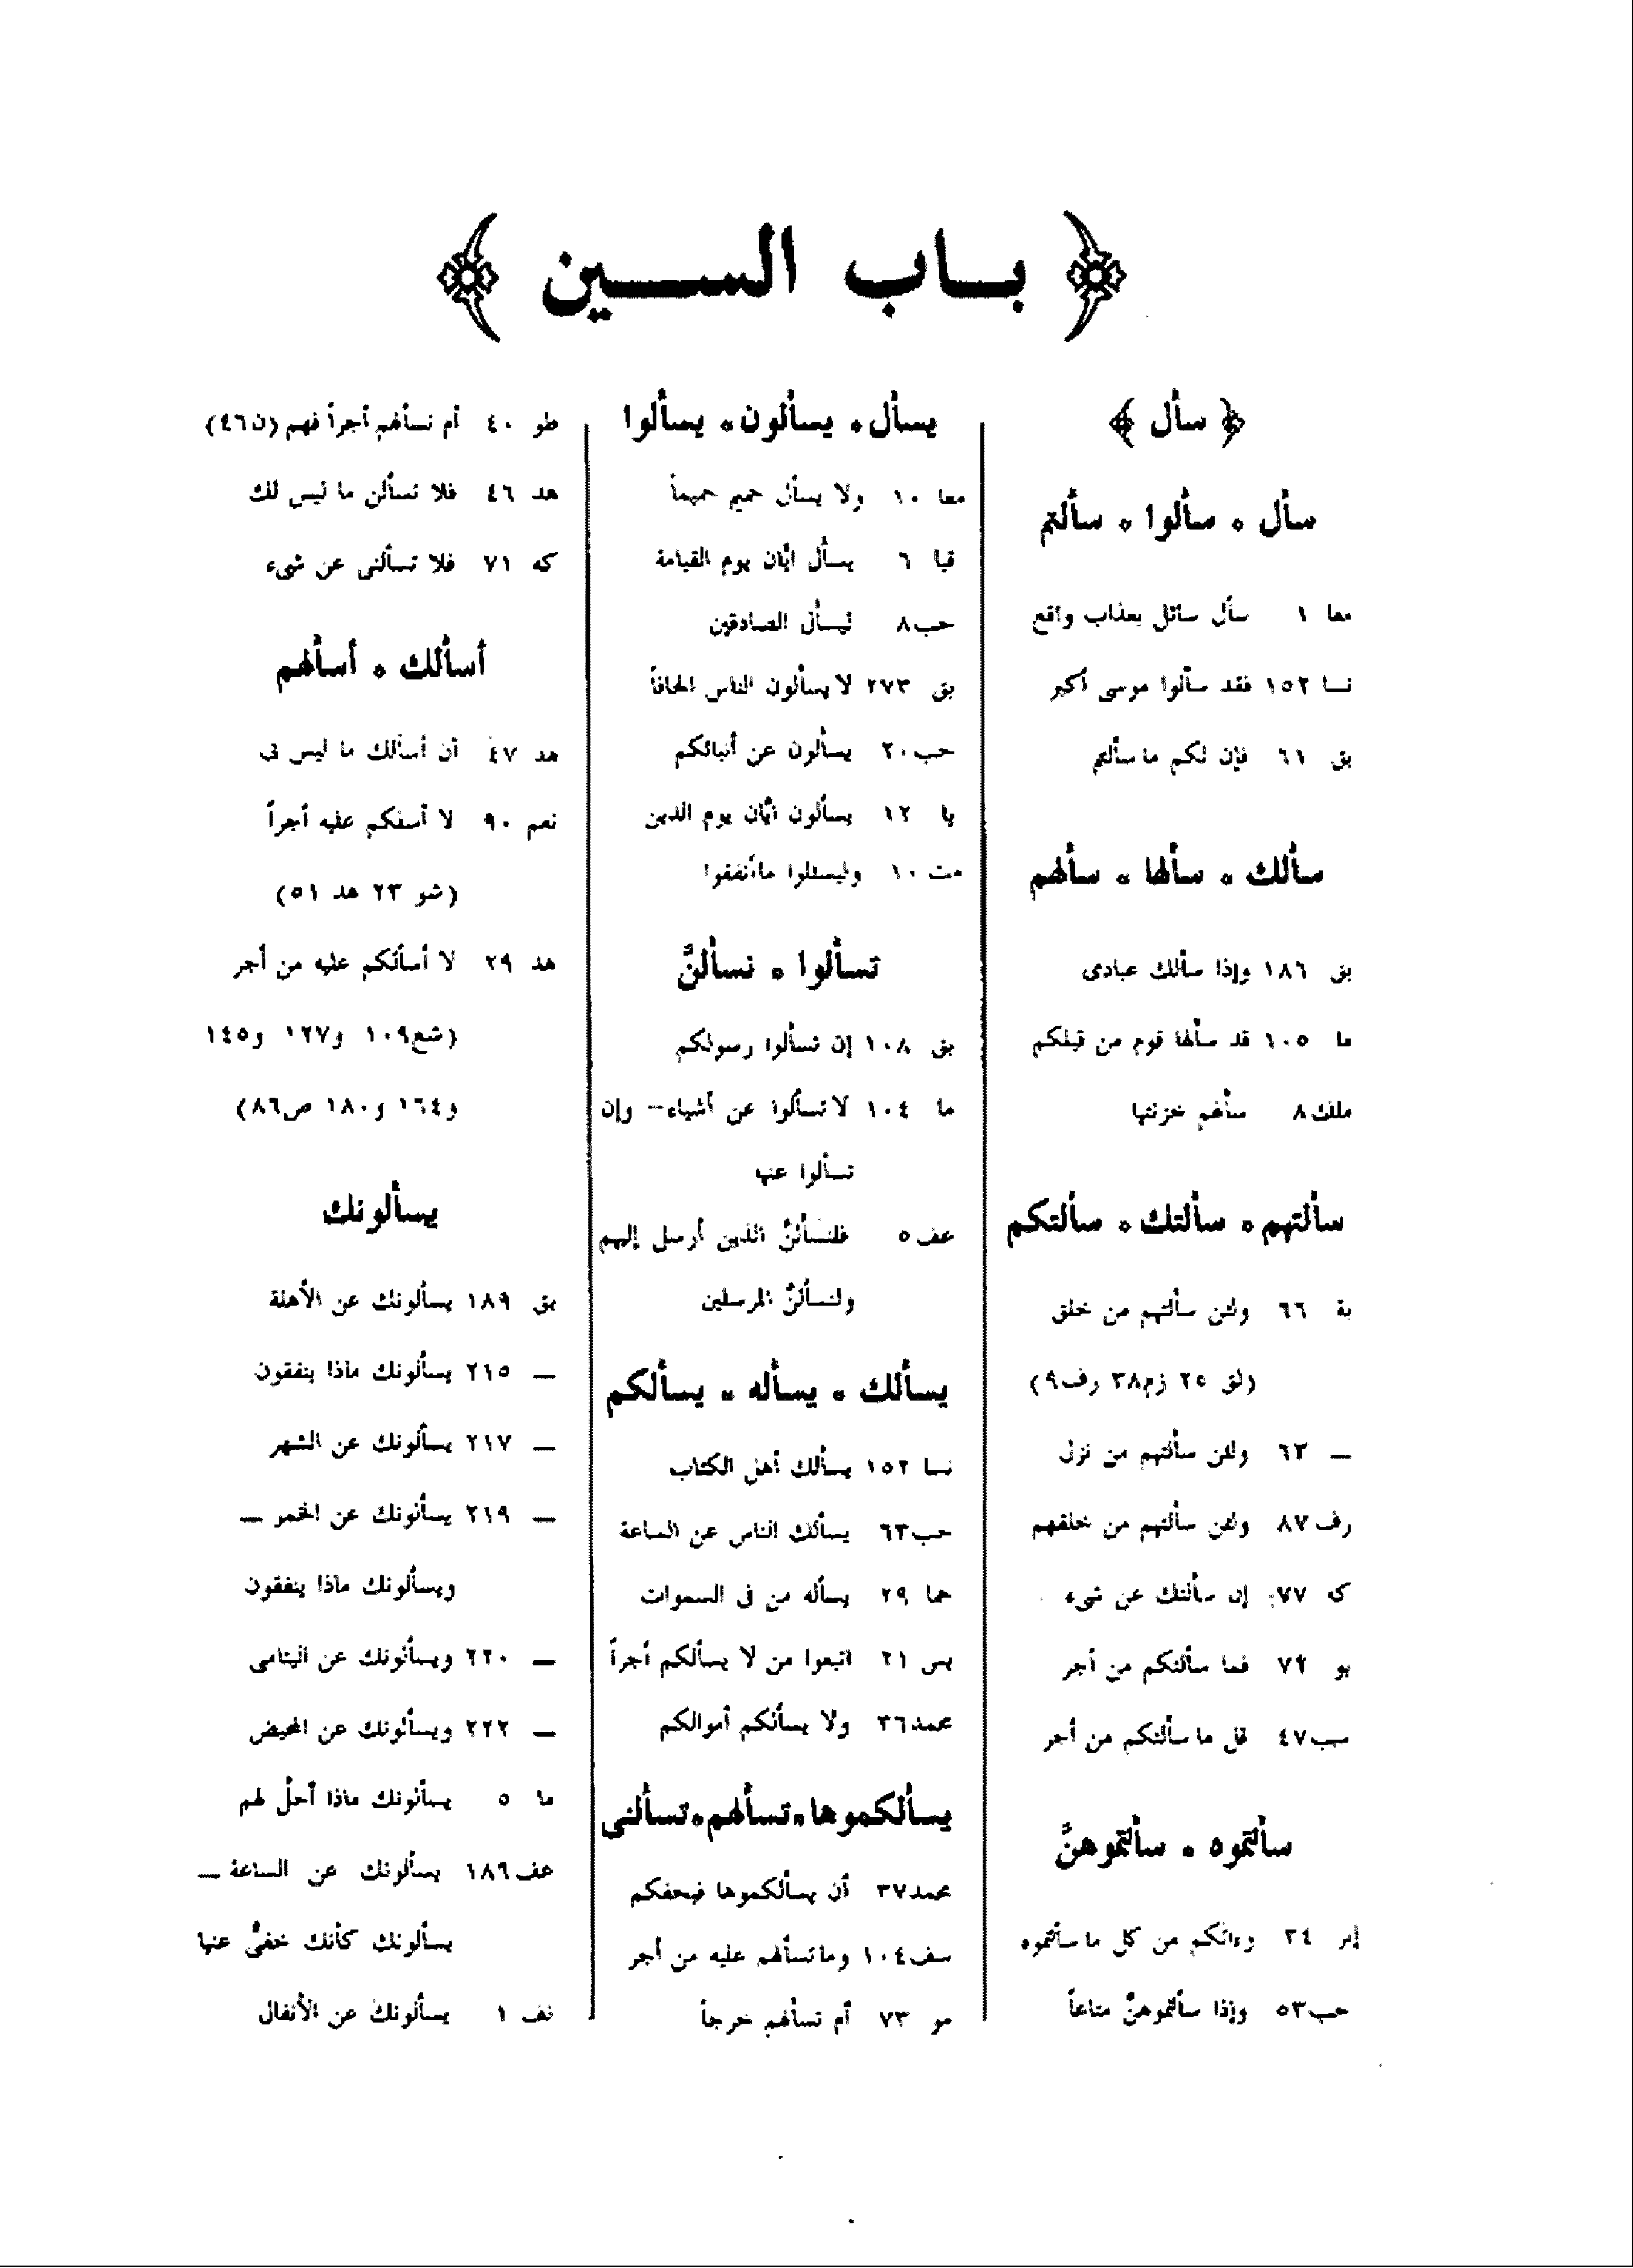 ﴿ بـاب الســين ﴾
﴿ سأل ﴾
سأل ٠ سألوا ٠ سألتم
معا ١ سأل سائل بعذاب واقع
نسا ١٥٢ فقد سألوا موسى أكبر
بق ٦١ فإن لكم ما سألتم
سألك ٠ سألها ٠ سألهم
بق ١٨٦ وإذا سألك عبادى
ما ١٠٥ قد سألها قوم من قبلكم
ملك ٨ سألهم خزنتها
سألتهم ٠ سألتك ٠ سألتكم
بة ٦٦ ولئن سألتهم من خلق
(لق ٢٥ زم٣٨ رف٩)
— ٦٣ ولئن سألتهم من نزل
رف ٨٧ ولئن سألتهم من خلقهم
كه ٧٧ إن سألتك عن شىء
يو ٧٢ فما سألتكم من أجر
سب ٤٧ قل ما سألتكم من أجر
سألتموه ٠ سألتموهنَّ
إبر ٣٤ وءاتكم من كل ما سألتموه
حب ٥٣ وإذا سألتموهنَّ متاعاً
يسأل ٠ يسألون ٠ يسألوا
معا ١٠ ولا يسأل حميم حميماً
قيا ٦ يسأل أيَّان يوم القيامة
حب ٨ ليسأل الصادقين
بق ٢٧٣ لا يسألون الناس إلحافاً
حب ٢٠ يسألون عن أنبائكم
يا ١٢ يسألون أيَّان يوم الدين
مت ١٠ وليسئلوا ما أنفقوا
تسألوا ٠ نسألنَّ
بق ١٠٨ إن تسألوا رسولكم
ما ١٠٤ لا تسألوا عن أشياء— وإن
تسألوا عنها
عف ٥ فلنسألنَّ الذين أرسل إليهم
ولنسألنَّ المرسلين
يسألك ٠ يسأله ٠ يسألكم
نسا ١٥٢ يسألك أهل الكتاب
حب ٦٣ يسألك الناس عن الساعة
حما ٢٩ يسأله من فى السموات
يس ٢١ اتبعوا من لا يسألكم أجراً
محمد ٣٦ ولا يسألكم أموالكم
يسألكموها ٠ تسألهم ٠ تسألنى
محمد ٣٧ أن يسألكموها فيحفكم
سف ١٠٤ وما تسألهم عليه من أجر
مو ٧٣ أم تسألهم خرجاً
طو ٤٠ أم تسألهم أجراً فهم (ن ٤٦)
هد ٤٦ فلا تسألن ما ليس لك
كه ٧١ فلا تسألنى عن شىء
أسألك ٠ أسألهم
هد ٤٧ أن أسألك ما ليس لى
نعم ٩٠ لا أسئلكم عليه أجراً
(شو ٢٣ هد ٥١)
هد ٢٩ لا أسألكم عليه من أجر
(شع ١٠٩ و١٢٧ و١٤٥
و١٦٤ و١٨٠ ص٨٦)
يسألونك
بق ١٨٩ يسألونك عن الأهلة
— ٢١٥ يسألونك ماذا ينفقون
— ٢١٧ يسألونك عن الشهر
— ٢١٩ يسألونك عن الخمر —
ويسألونك ماذا ينفقون
— ٢٢٠ ويسألونك عن اليتامى
— ٢٢٢ ويسألونك عن المحيض
ما ٥ يسألونك ماذا أحلَّ لهم
عف ١٨٩ يسألونك عن الساعة —
يسألونك كأنك حفىٌّ عنها
نف ١ يسألونك عن الأنفال